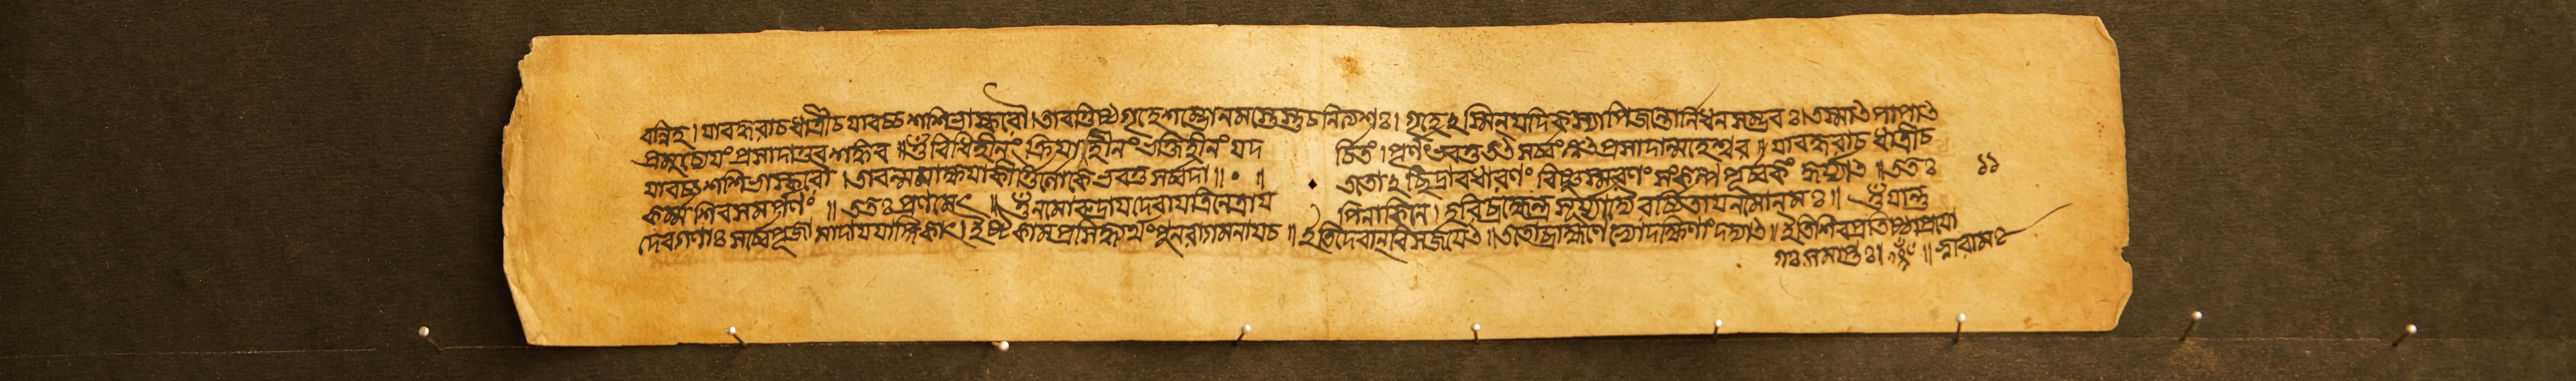 বন্নিহ। যাবদ্ধরাচ ধাত্রীচ যাবচ্চ শশিভাস্করৌ। তাবত্তিষ্ঠ গৃহে শম্ভো নমস্তেস্তুচ নিত্যশঃ। গৃহেঽস্মিন্ যদি কস্যাপি জন্তোর্নিধন সম্ভবঃ। তস্মাৎ পাপাৎ
প্রমুচ্যেয়ং প্রসাদাত্তব শঙ্কর॥ ওঁ বিধিহীনং ক্রিয়াহীনং ভক্তিহীনং যদর্চিতং। পূর্ণং ভবতু তৎ সর্ব্বং ত্বৎ প্রসাদান্মহেশ্বর॥ যাবদ্ধরাচ ধাত্রীচ
যাবচ্চ শশিভাস্করৌ। তাবন্মমাক্ষয়াকীর্ত্তির্লোকে ভবতু সর্ব্বদা॥ ॥ ততোঽচ্ছিদ্রাবধারণং বিষ্ণুস্মরণং সংকল্প পূর্ব্বকং কুর্য্যাৎ॥ ততঃ ১১
কর্ম্ম শিবে সমর্পণং॥ ততঃ প্রণামঃ॥ ওঁ নমো রুদ্রায় দেবায় ত্রিনেত্রায় পিনাকিনে। হরি ব্রহ্মেন্দ্র সূর্য্যাদ্যৈ বন্দিতায় নমোনমঃ॥ ওঁ যান্তু
দেবগণাঃ সর্ব্বে পূজামাদায় যাজ্ঞিকাৎ। ইষ্টকাম প্রসিদ্ধ্যর্থং পুনরাগমনায়চ॥ ইতি দেবান্ বিসর্জয়েৎ॥ ততো ব্রাহ্মণেভ্যো দক্ষিণাং দদ্যাৎ॥ ইতি শিবপ্রতিষ্ঠাপ্রয়ো
গঃ সমাপ্তঃ। শ্রীরামঃ